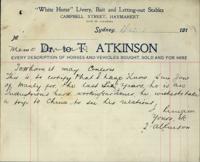 "White Horse" Livery, Bait and Letting-out Stables
CAMPBELL STREET, HAYMARKET
Sydney, 191
Memo Dr. to T. ATKINSON
EVERY DESCRIPTION OF HORSES AND VEHICLES BOUGHT, SOLD AND FOR HIRE
To whom it may Concern
This is to certify that I have Know Sun Jom
of Manly for the last Six years, he is an
he wishes to take
a trip to China to see his relations
I remain
Yours &c
T Atkinson